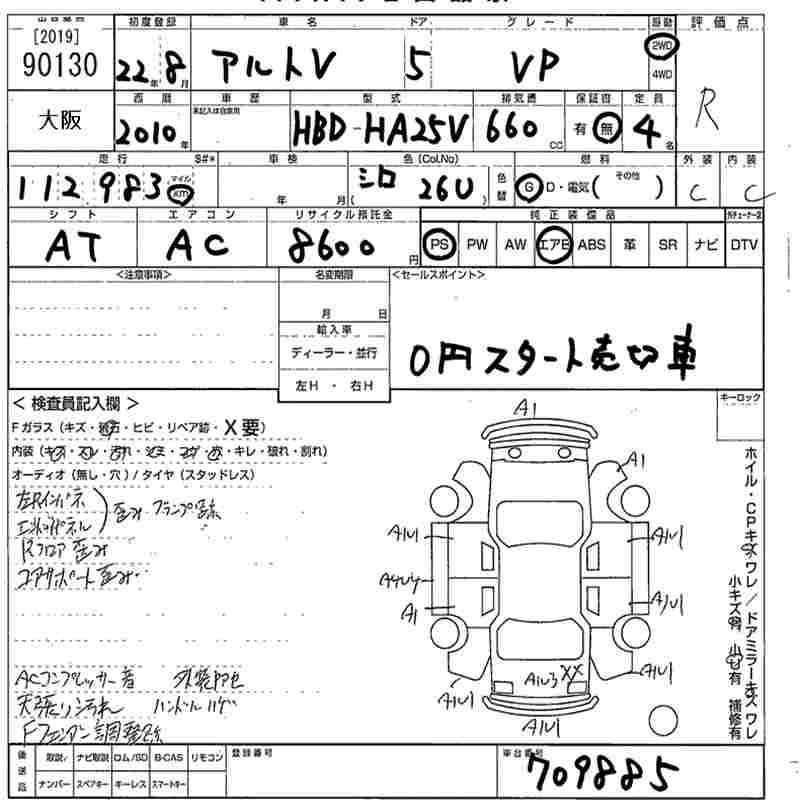 [2019]
90130
初度登録 車名 ドア グレード 駆動 評価点
22年8月 アルトV 5 VP 2WD
4WD
R
大阪
西暦 車歴 型式 排気量 保証書 定員
2010年 未記入は自家用 HBD-HA25V 660cc 有 無 4名
走行 S#* 車検 色(Col.No) 燃料 外装 内装
112983 マイル Km 年 月 シロ (26U) 色替 G D・電気 (その他 ) C C
シフト エアコン リサイクル預託金 純正装備品
AT AC 8600円 PS PW AW エアB ABS 革 SR ナビ DTV
<注意事項> 名変期限 <セールスポイント>
月 日
輸入車
ディーラー・並行
左H ・ 右H
0円スタート売切車
<検査員記入欄> キーロック
Fガラス(キズ・飛石・ヒビ・リペア跡・X要)
内装(キズ・スレ・汚れ・シミ・コゲ・穴・キレ・破れ・割れ)
オーディオ(無し・穴)/タイヤ(スタッドレス)
左Rインパネ
エンドパネル
歪み クランプ跡
Rフロア歪み
コアサポート歪み
ACコンプレッサー音 外装凹色
天張り汚れ ハンドルハゲ
Fフェンダー調整跡
A1
A1
Aルリ
Aルリ
A4U4
A1
Aルリ
Aルリ
Aルリ
Aル3 XX
Aルリ
ホイル・CPキズワレ/ドアミラーキズワレ
小キズ有 小凹有 補修有
後送品 取説 ナビ取説 ロム/SD B-CAS リモコン 登録番号 車台番号
ナンバー スペアキー キーレス スマートキー 709885